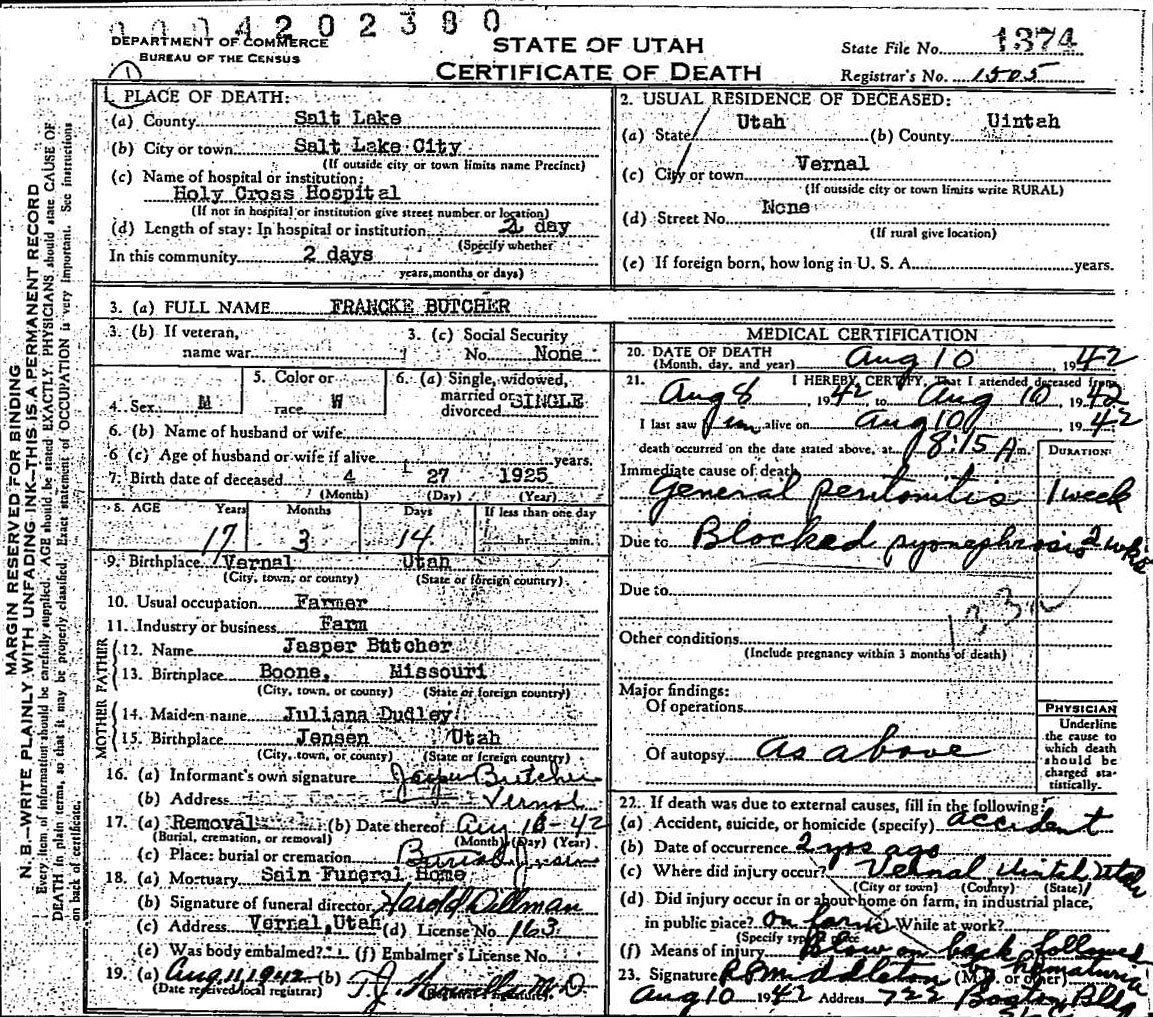 0004202380
DEPARTMENT OF COMMERCE
BUREAU OF THE CENSUS
STATE OF UTAH
CERTIFICATE OF DEATH
State File No. 1374
Registrar's No. 1505
MARGIN RESERVED FOR BINDING
N. B.—WRITE PLAINLY WITH UNFADING INK—THIS IS A PERMANENT RECORD
Every item of information should be carefully supplied. AGE should be stated EXACTLY. PHYSICIANS should state CAUSE OF
DEATH in plain terms, so that it may be properly classified. Exact statement of OCCUPATION is very important. See instructions
on back of certificate.
1
1. PLACE OF DEATH:
(a) County Salt Lake
(b) City or town Salt Lake City
(If outside city or town limits name Precinct)
(c) Name of hospital or institution:
Holy Cross Hospital
(If not in hospital or institution give street number or location)
(d) Length of stay: In hospital or institution 2 day
(Specify whether
In this community 2 days
years, months or days)
2. USUAL RESIDENCE OF DECEASED:
(a) State Utah (b) County Uintah
(c) City or town Vernal
(If outside city or town limits write RURAL)
(d) Street No. None
(If rural give location)
(e) If foreign born, how long in U. S. A. years.
3. (a) FULL NAME FRANCKE BUTCHER
3. (b) If veteran, name war
3. (c) Social Security No. None
4. Sex M
5. Color or race W
6. (a) Single, widowed, married or divorced SINGLE
6. (b) Name of husband or wife
6 (c) Age of husband or wife if alive years.
7. Birth date of deceased 4 27 1925
(Month) (Day) (Year)
8. AGE Years Months Days If less than one day
17 3 14 hr. min.
9. Birthplace Vernal Utah
(City, town, or county) (State or foreign country)
10. Usual occupation Farmer
11. Industry or business Farm
FATHER
12. Name Jasper Butcher
13. Birthplace Boone, Missouri
(City, town, or county) (State or foreign country)
MOTHER
14. Maiden name Juliana Dudley
15. Birthplace Jensen Utah
(City, town, or county) (State or foreign country)
16. (a) Informant's own signature Jasper Butcher
(b) Address Vernal
17. (a) Removal (b) Date thereof Aug -42
(Burial, cremation, or removal) (Month) (Day) (Year)
(c) Place: burial or cremation Burial Jensen
18. (a) Mortuary Sain Funeral Home
(b) Signature of funeral director Harold Dillman
(c) Address Vernal, Utah (d) License No. 163
(e) Was body embalmed? (f) Embalmer's License No.
19. (a) Aug 11, 1942 (b) T. J. M D
(Date received local registrar) (Registrar's signature)
MEDICAL CERTIFICATION
20. DATE OF DEATH Aug 10 1942
(Month, day, and year)
21. I HEREBY CERTIFY, That I attended deceased from
Aug 8, 1942 to Aug 10, 1942
I last saw him alive on Aug 10, 1942
death occurred on the date stated above, at 8:15 A m.
DURATION
Immediate cause of death
General peritonitis 1 week
Due to Blocked pyonephrosis 2 wks
Due to
133
Other conditions
(Include pregnancy within 3 months of death)
Major findings:
Of operations
Of autopsy as above
PHYSICIAN
Underline
the cause to
which death
should be
charged sta-
tistically.
22. If death was due to external causes, fill in the following:
(a) Accident, suicide, or homicide (specify) accident
(b) Date of occurrence 2 yrs ago
(c) Where did injury occur? Vernal Uintah Utah
(City or town) (County) (State)
(d) Did injury occur in or about home on farm, in industrial place,
in public place? On farm While at work?
(Specify type of place
(f) Means of injury Blow on back followed
hematuria
23. Signature R P Middleton (M. D. or other)
Aug 10 1942 Address 722 Boston Bldg